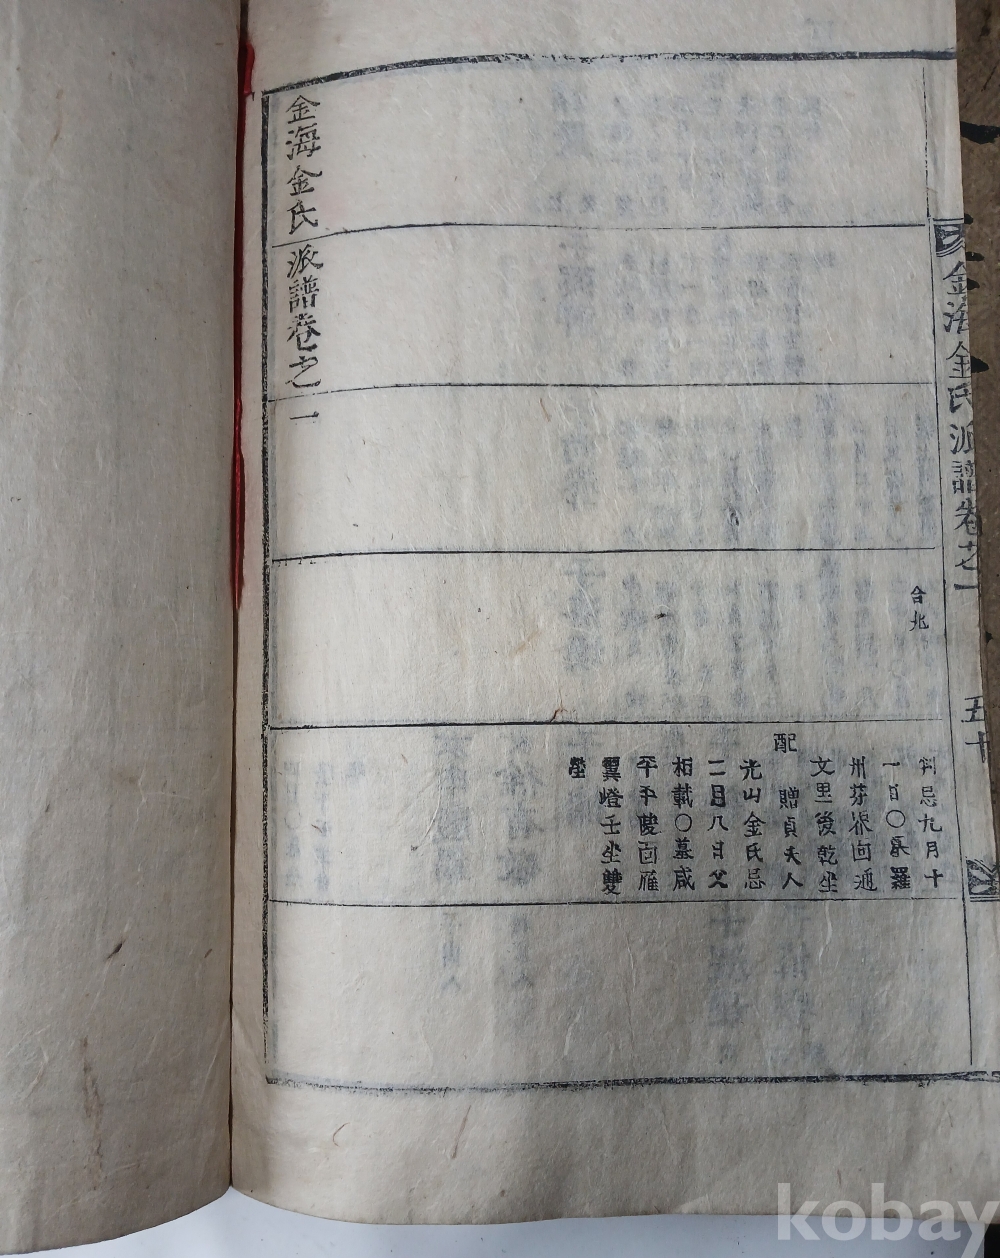 金海金氏派譜卷之一
五十
合北
判忌九月十
一日〇墓羅
州芬谷面通
文里後乾坐
配 贈貞夫人
光山金氏忌
二月八日父
相載〇墓咸
平平陵面雁
翼嶝壬坐雙
塋
金海金氏派譜卷之一
kobay